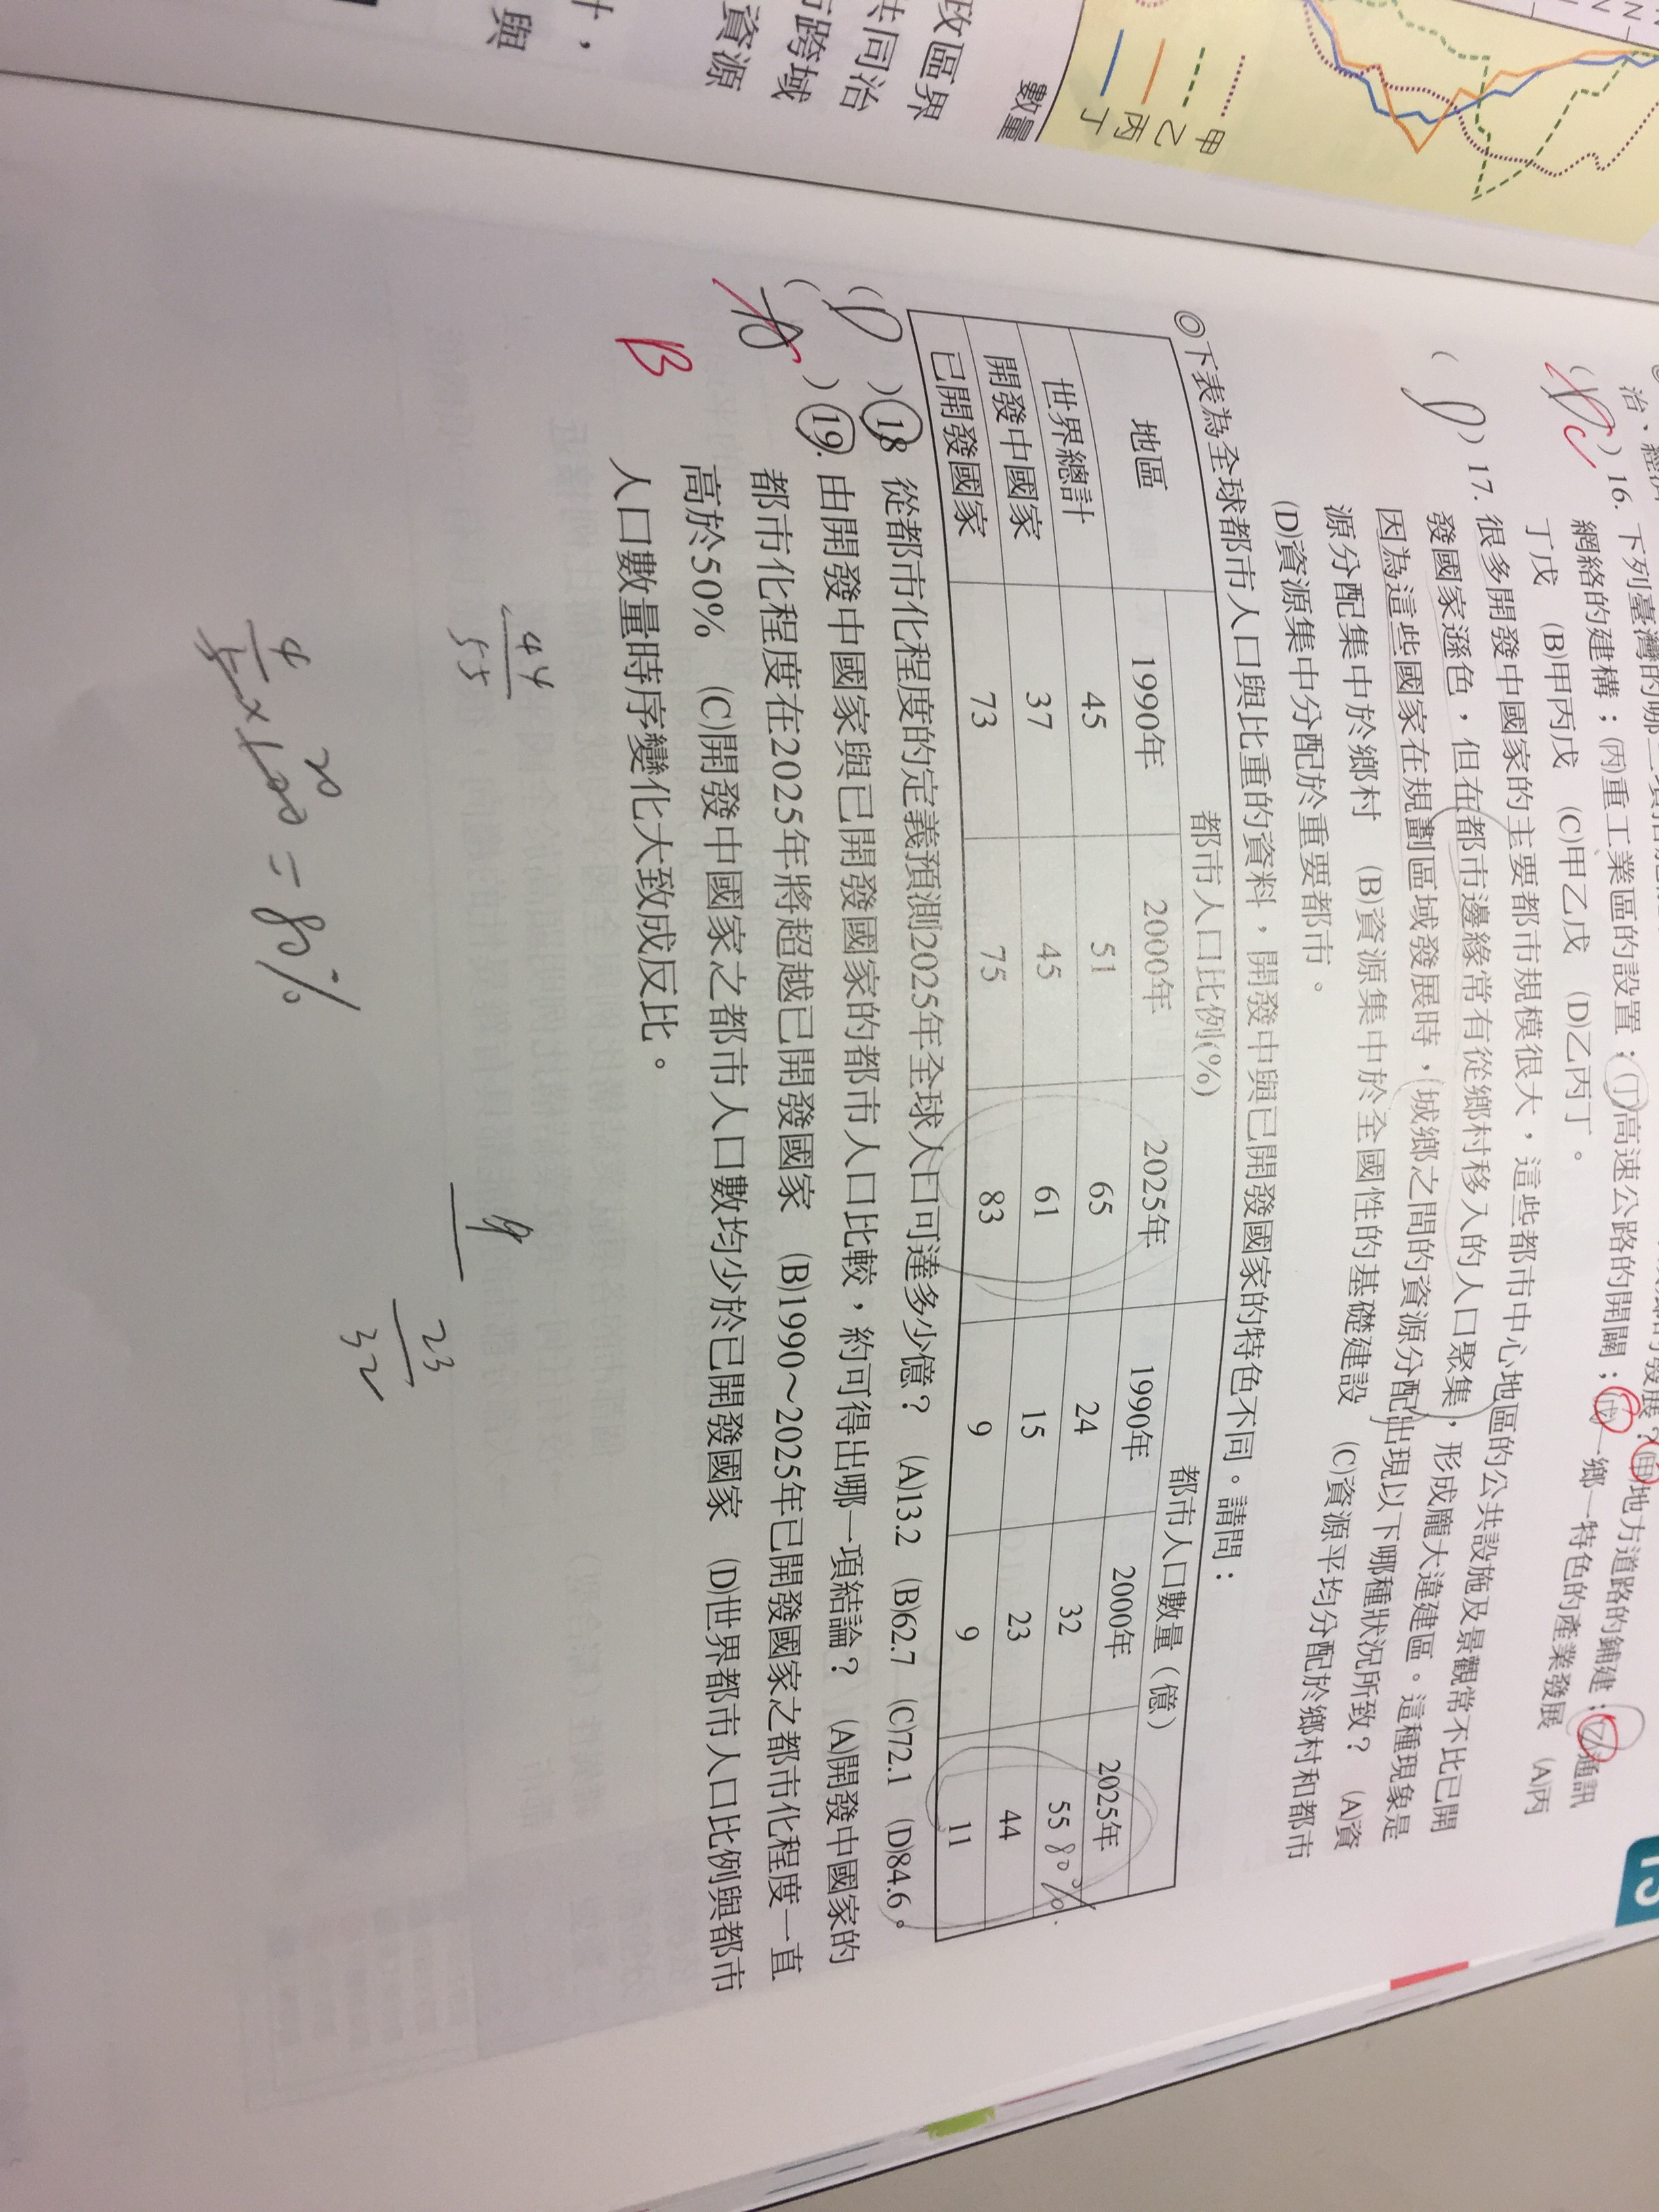 政區界
共同治
跨域
資源
計，
與
數量
甲
乙
丙
丁
15
(D C) 16. 下列臺灣的哪
(甲)地方道路的鋪建；(乙)通訊
網絡的建構；(丙)重工業區的設置；(丁)高速公路的開闢；(戊)一鄉一特色的產業發展 (A)丙
丁戊 (B)甲丙戊 (C)甲乙戊 (D)乙丙丁。
(D) 17. 很多開發中國家的主要都市規模很大，這些都市中心地區的公共設施及景觀常不比已開
發國家遜色，但在都市邊緣常有從鄉村移入的人口聚集，形成龐大違建區。這種現象是
因為這些國家在規劃區域發展時，城鄉之間的資源分配出現以下哪種狀況所致？ (A)資
源分配集中於鄉村 (B)資源集中於全國性的基礎建設 (C)資源平均分配於鄉村和都市
(D)資源集中分配於重要都市。
◎下表為全球都市人口與比重的資料，開發中與已開發國家的特色不同。請問：
地區 都市人口比例(%) 都市人口數量（億）
1990年 2000年 2025年 1990年 2000年 2025年
世界總計 45 51 65 24 32 55 80%
開發中國家 37 45 61 15 23 44
已開發國家 73 75 83 9 9 11
(D) 18 從都市化程度的定義預測2025年全球人口可達多少億？ (A)13.2 (B)62.7 (C)72.1 (D)84.6。
( ) 19. 由開發中國家與已開發國家的都市人口比較，約可得出哪一項結論？ (A)開發中國家的
都市化程度在2025年將超越已開發國家 (B)1990～2025年已開發國家之都市化程度一直
高於50% (C)開發中國家之都市人口數均少於已開發國家 (D)世界都市人口比例與都市
人口數量時序變化大致成反比。
B
44
55
9
23
32
4/5 × 100 = 80%
20